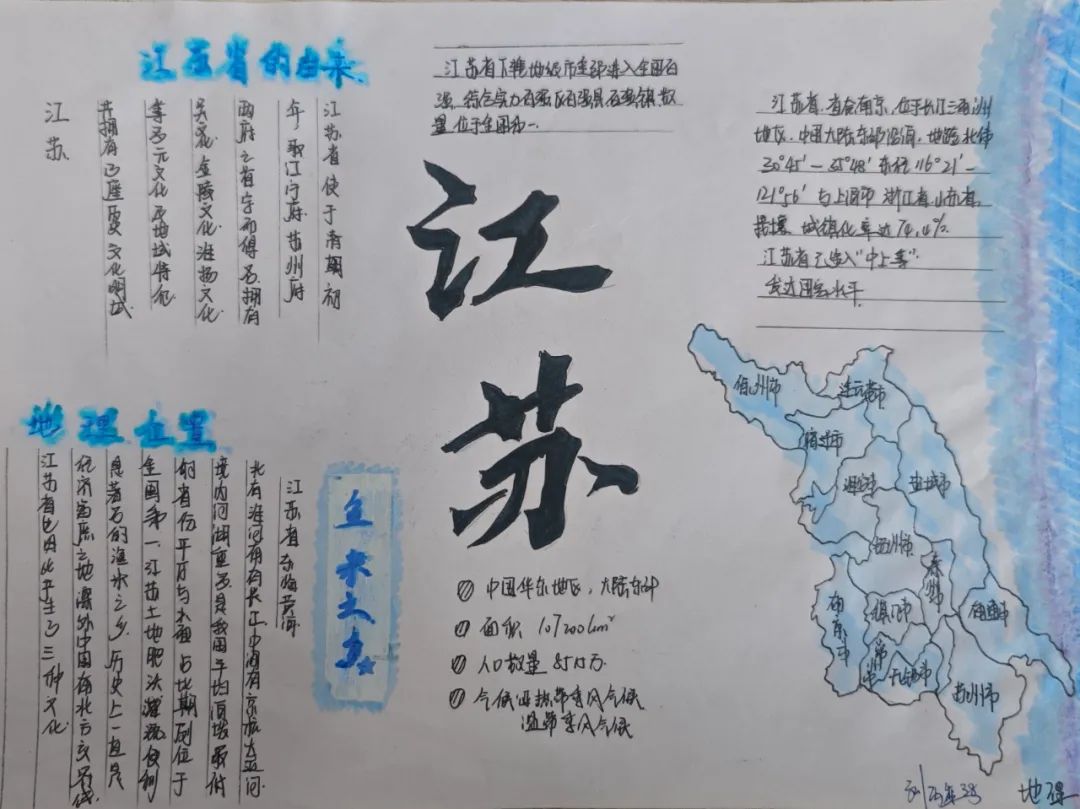 江苏省的由来
江苏
江苏省使于清朝初
年,取江宁府 苏州府
两府之首字而得名拥有
吴文化 金陵文化 淮扬文化
等多元文化及地域特征
共拥有13座历史文化名城
江苏省下辖地级市全部进入全国百
强,综合实力百强区百强县百强镇数
量位于全国第一.
江苏
江苏省,省会南京,位于长江三角洲
地区,中国大陆东部沿海,地跨北纬
30°45′—35°48′东经116°21′—
121°56′与上海市 浙江省 山东省,
接壤 城镇化率达74,4%.
江苏省已步入"中上等"
发达国家水平.
地理位置
江苏省东临黄海
北有淮河南有长江中间有京杭大运河
境内河湖
的省份平原与水面占比期列位于
全国第一,江苏土地肥沃灌溉便利
是著名的渔水之乡,历史上一直是
经济富庶之地
江苏省也因此产生了三种文化
鱼米之乡
中国华东地区,大陆东岸
面积 107200km²
人口数量 8515万
气候亚热带季风气候
温带季风气候
徐州市
连云港市
宿迁市
淮安市
盐城市
扬州市
泰州市
南京市
镇江市
南通市
常州
无锡市
苏州市
地理